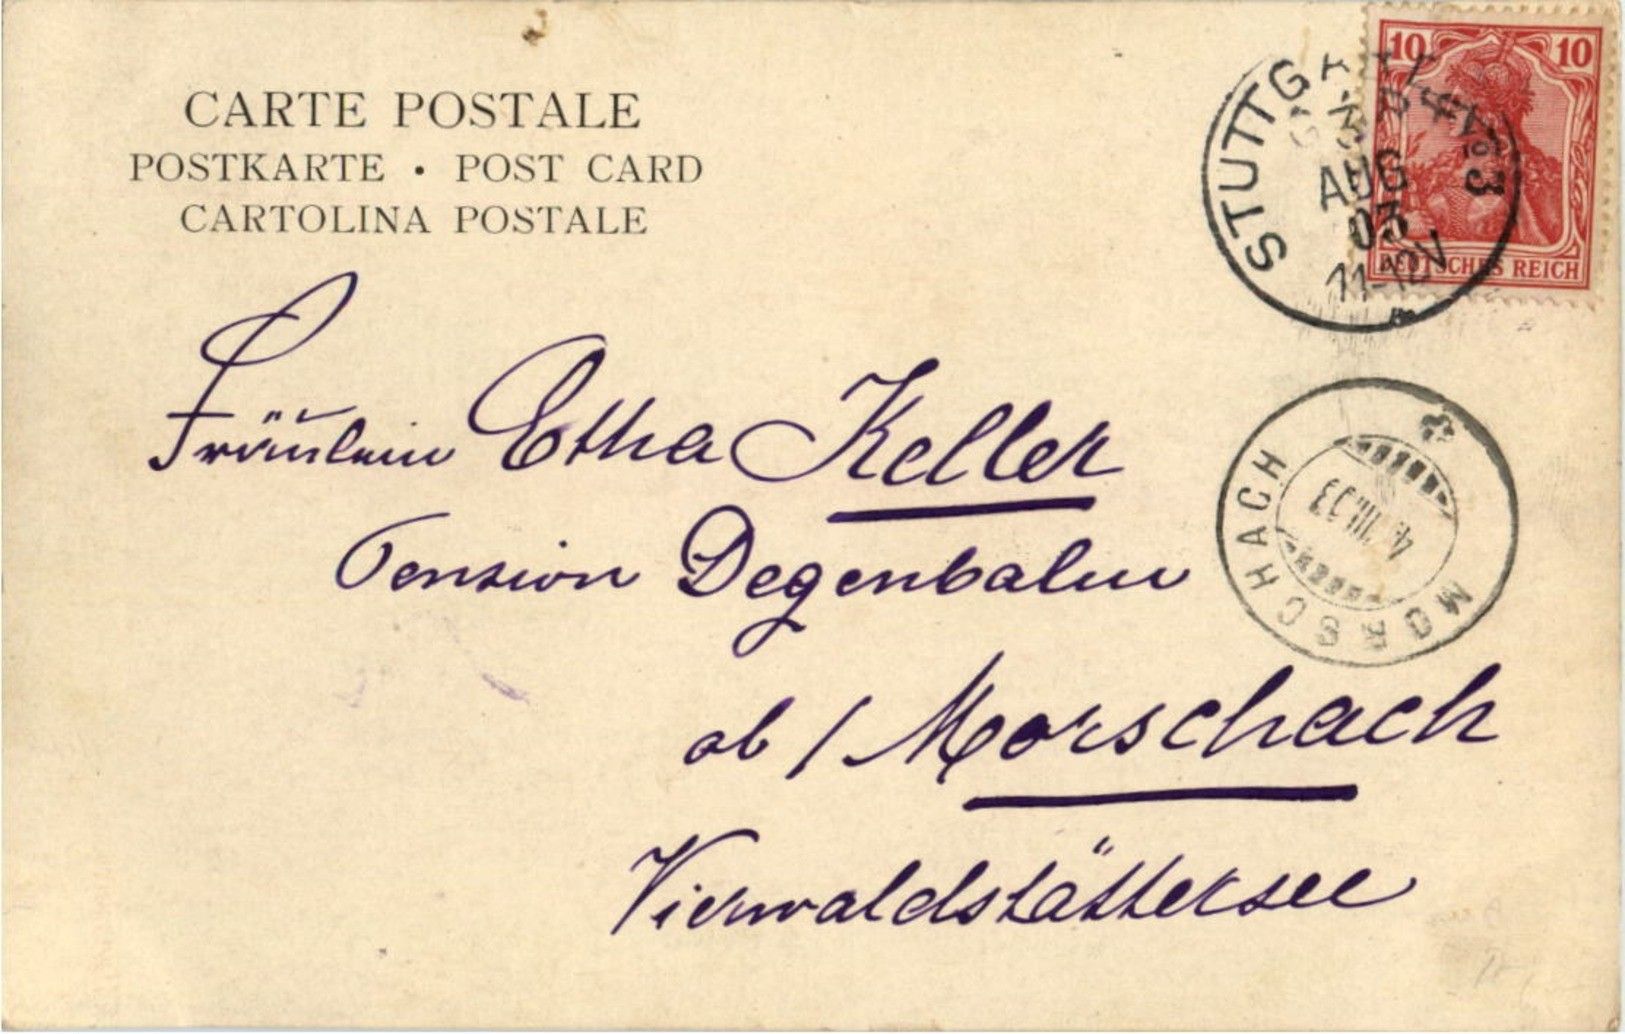 CARTE POSTALE
POSTKARTE • POST CARD
CARTOLINA POSTALE
10 10
DEUTSCHES REICH
STUTTGART
3
AUG
03
11-12V
Fräulein Etha Keller
Pension Degenbalm
ob / Morschach
Vierwaldstättersee
MORSCHACH
4.VIII.03